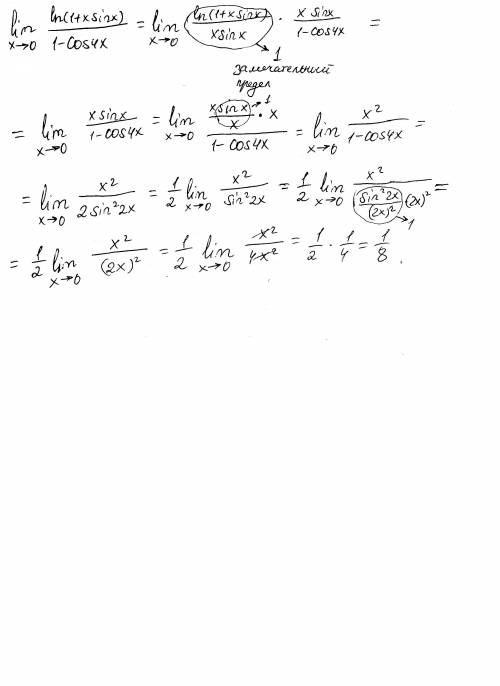 lim x→0 ln(1+xsinx)/(1-cos4x) = lim x→0 ln(1+xsinx)/(xsinx) · x sinx/(1-cos4x) =
→ 1
замечательный
предел
= lim x→0 xsinx/(1-cos4x) = lim x→0 ((xsinx)/x →1 · x)/(1-cos4x) = lim x→0 x²/(1-cos4x) =
= lim x→0 x²/(2sin²2x) = 1/2 lim x→0 x²/(sin²2x) = 1/2 lim x→0 x²/((sin²2x)/(2x)² (2x)²) =
→ 1
= 1/2 lim x→0 x²/(2x)² = 1/2 lim x→0 x²/(4x²) = 1/2 · 1/4 = 1/8 .